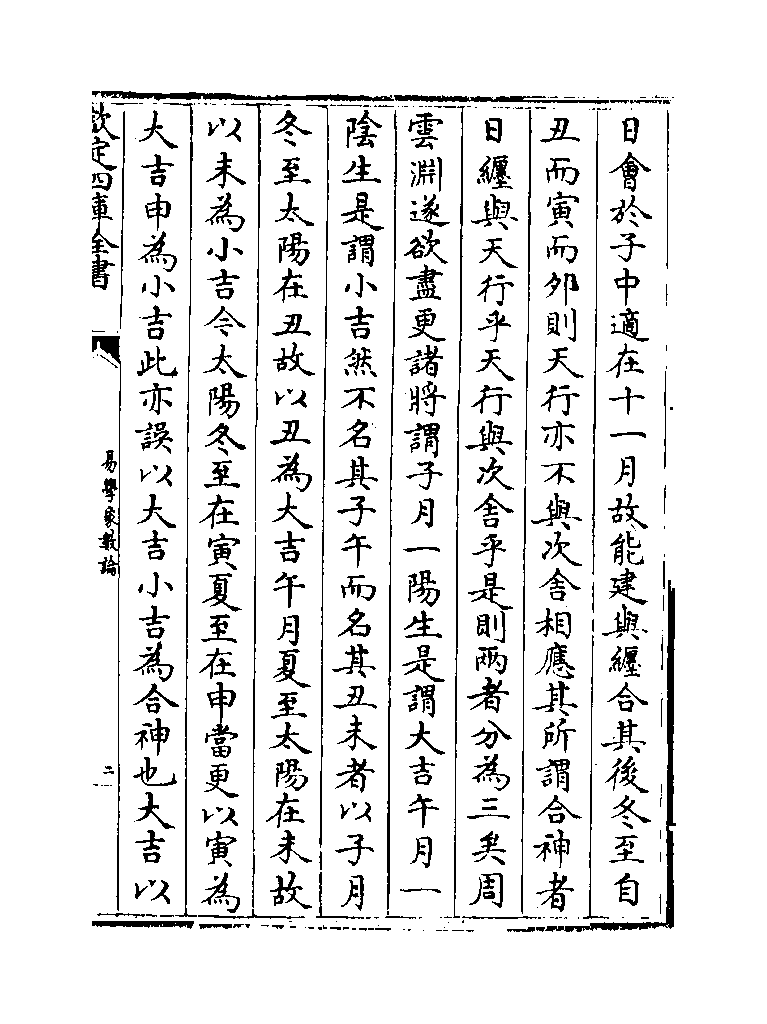 日會於子中適在十一月故能建與纒合其後冬至自
丑而寅而夘則天行亦不與次舍相應其所謂合神者
日纒與天行乎天行與次舍乎是則兩者分為三矣周
雲淵遂欲盡更諸將謂子月一陽生是謂大吉午月一
陰生是謂小吉然不名其子午而名其丑未者以子月
冬至太陽在丑故以丑為大吉午月夏至太陽在未故
以未為小吉今太陽冬至在寅夏至在申當更以寅為
大吉申為小吉此亦誤以大吉小吉為合神也大吉以
欽定四庫全書
易學象數論
二